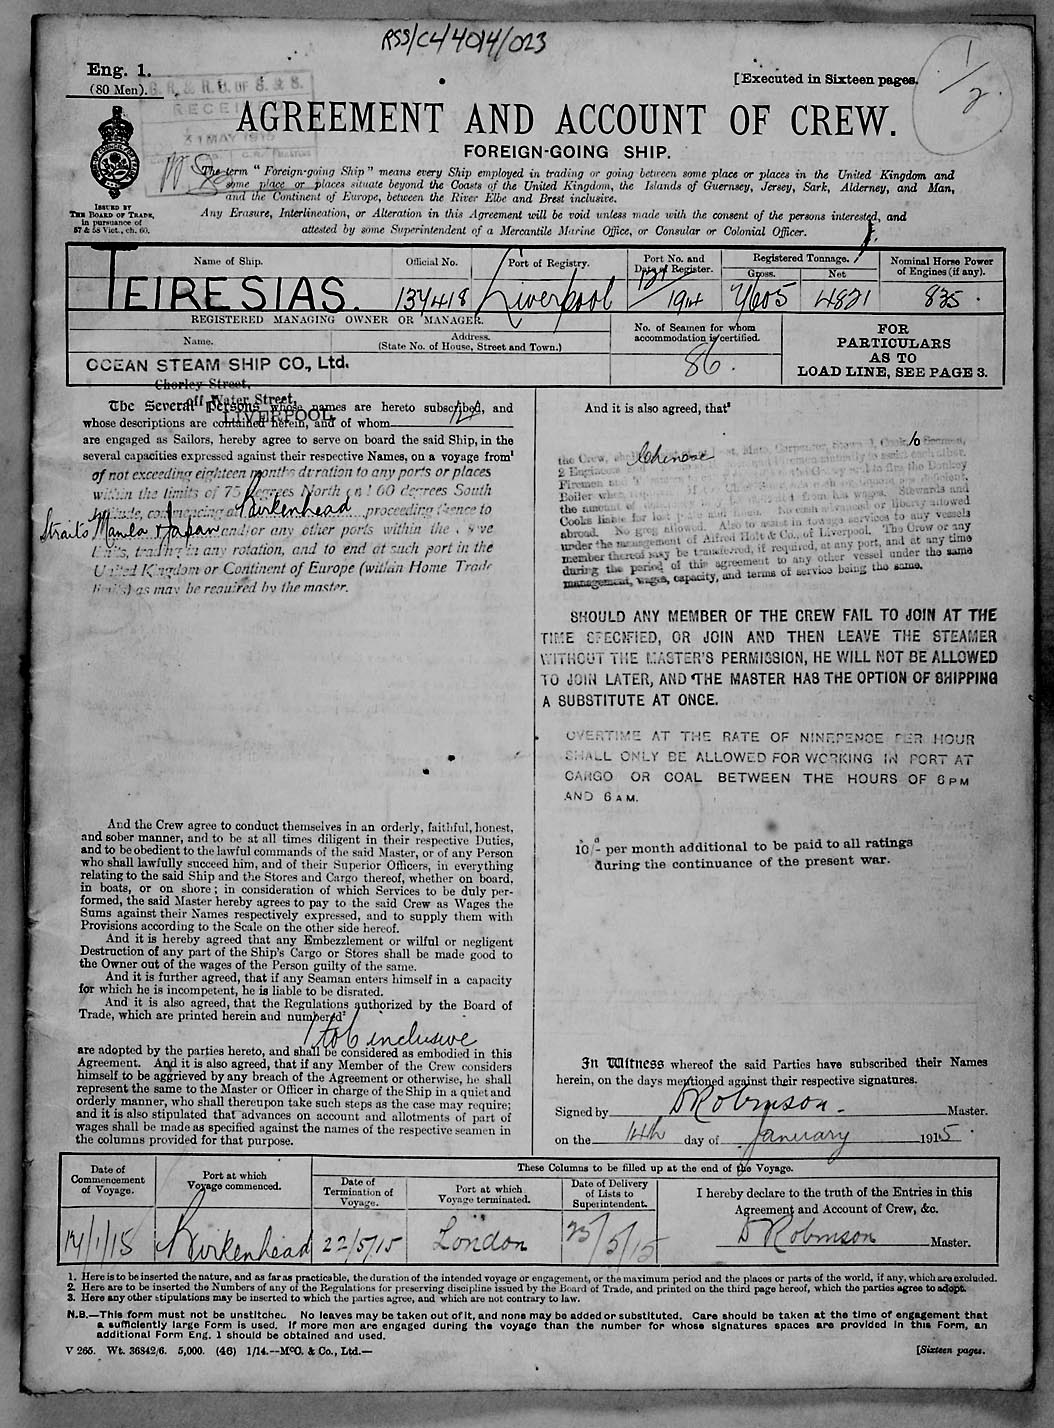 RSS/CL/4014/023
Eng. 1.
(80 Men).
[Executed in Sixteen pages.
1/2
RECEI
31 MAY 1915
AGREEMENT AND ACCOUNT OF CREW.
FOREIGN-GOING SHIP.
ISSUED BY
THE BOARD OF TRADE,
in pursuance of
57 & 58 Vict., ch. 60.
The term " Foreign-going Ship " means every Ship employed in trading or going between some place or places in the United Kingdom and
some place or places situate beyond the Coasts of the United Kingdom, the Islands of Guernsey, Jersey, Sark, Alderney, and Man,
and the Continent of Europe, between the River Elbe and Brest inclusive.
Any Erasure, Interlineation, or Alteration in this Agreement will be void unless made with the consent of the persons interested, and
attested by some Superintendent of a Mercantile Marine Office, or Consular or Colonial Officer.
Name of Ship. Official No. Port of Registry. Port No. and Date of Register. Registered Tonnage. Gross. Net Nominal Horse Power of Engines (if any).
TEIRESIAS. 137418 Liverpool 12/1914 7605 4821 835.
REGISTERED MANAGING OWNER OR MANAGER.
Name. Address. (State No. of House, Street and Town.)
No. of Seamen for whom accommodation is certified.
86.
FOR
PARTICULARS
AS TO
LOAD LINE, SEE PAGE 3.
OCEAN STEAM SHIP CO., Ltd.
Chorley Street,
off Water Street,
LIVERPOOL
The Several Persons whose names are hereto subscribed, and
whose descriptions are contained herein, and of whom
are engaged as Sailors, hereby agree to serve on board the said Ship, in the
several capacities expressed against their respective Names, on a voyage from¹
of not exceeding eighteen months duration to any ports or places
within the limits of 75 degrees North and 60 degrees South
latitude, commencing at Birkenhead proceeding thence to
Straits Manila & Japan and/or any other ports within the above
limits, trading in any rotation, and to end at such port in the
United Kingdom or Continent of Europe (within Home Trade
limits) as may be required by the master.
And the Crew agree to conduct themselves in an orderly, faithful, honest,
and sober manner, and to be at all times diligent in their respective Duties,
and to be obedient to the lawful commands of the said Master, or of any Person
who shall lawfully succeed him, and of their Superior Officers, in everything
relating to the said Ship and the Stores and Cargo thereof, whether on board,
in boats, or on shore; in consideration of which Services to be duly per-
formed, the said Master hereby agrees to pay to the said Crew as Wages the
Sums against their Names respectively expressed, and to supply them with
Provisions according to the Scale on the other side hereof.
And it is hereby agreed that any Embezzlement or wilful or negligent
Destruction of any part of the Ship's Cargo or Stores shall be made good to
the Owner out of the wages of the Person guilty of the same.
And it is further agreed, that if any Seaman enters himself in a capacity
for which he is incompetent, he is liable to be disrated.
And it is also agreed, that the Regulations authorized by the Board of
Trade, which are printed herein and numbered²
1 to 6 inclusive
are adopted by the parties hereto, and shall be considered as embodied in this
Agreement. And it is also agreed, that if any Member of the Crew considers
himself to be aggrieved by any breach of the Agreement or otherwise, he shall
represent the same to the Master or Officer in charge of the Ship in a quiet and
orderly manner, who shall thereupon take such steps as the case may require;
and it is also stipulated that advances on account and allotments of part of
wages shall be made as specified against the names of the respective seamen in
the columns provided for that purpose.
And it is also agreed, that³
the Crew, Chinese Mate, Carpenter, Cook, 10 Seamen,
2 Engineers
Firemen and the Donkey
Boiler when
the amount of Stewards and
Cooks liable for lost No cash advanced or liberty allowed
abroad. No grog allowed. Also to assist in towage services to any vessels
under the management of Alfred Holt & Co., of Liverpool. The Crew or any
member thereof may be transferred, if required, at any port, and at any time
during the period of this agreement to any other vessel under the same
management, wages, capacity, and terms of service being the same.
SHOULD ANY MEMBER OF THE CREW FAIL TO JOIN AT THE
TIME SPECIFIED, OR JOIN AND THEN LEAVE THE STEAMER
WITHOUT THE MASTER'S PERMISSION, HE WILL NOT BE ALLOWED
TO JOIN LATER, AND THE MASTER HAS THE OPTION OF SHIPPING
A SUBSTITUTE AT ONCE.
OVERTIME AT THE RATE OF NINEPENCE PER HOUR
SHALL ONLY BE ALLOWED FOR WORKING IN PORT AT
CARGO OR COAL BETWEEN THE HOURS OF 6 PM
AND 6 AM.
10/- per month additional to be paid to all ratings
during the continuance of the present war.
In Witness whereof the said Parties have subscribed their Names
herein, on the days mentioned against their respective signatures.
Signed by D Robinson. Master.
on the 14th day of January 1915.
These Columns to be filled up at the end of the Voyage.
Date of Commencement of Voyage. Port at which Voyage commenced. Date of Termination of Voyage. Port at which Voyage terminated. Date of Delivery of Lists to Superintendent.
I hereby declare to the truth of the Entries in this
Agreement and Account of Crew, &c.
14/1/15 Birkenhead 22/5/15 London 25/5/15
D Robinson Master.
1. Here is to be inserted the nature, and as far as practicable, the duration of the intended voyage or engagement, or the maximum period and the places or parts of the world, if any, which are excluded.
2. Here are to be inserted the Numbers of any of the Regulations for preserving discipline issued by the Board of Trade, and printed on the third page hereof, which the parties agree to adopt.
3. Here any other stipulations may be inserted to which the parties agree, and which are not contrary to law.
N.B.—This form must not be unstitched. No leaves may be taken out of it, and none may be added or substituted. Care should be taken at the time of engagement that
a sufficiently large Form is used. If more men are engaged during the voyage than the number for whose signatures spaces are provided in this Form, an
additional Form Eng. 1 should be obtained and used.
V 265. Wt. 36842/6. 5,000. (46) 1/14.--McC. & Co., Ltd.—
[Sixteen pages.